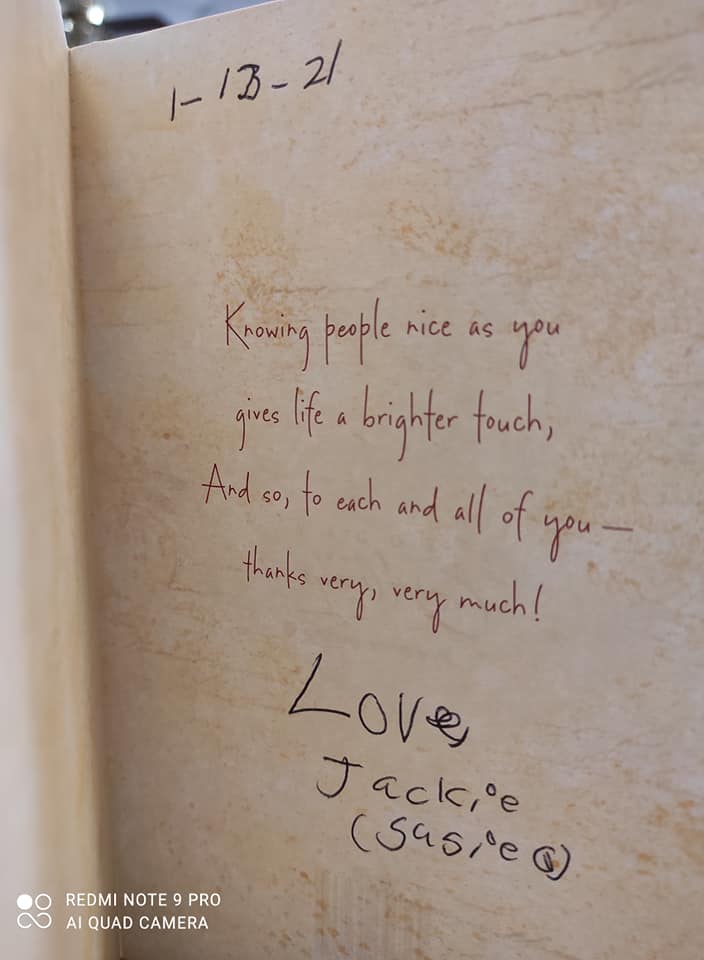 1-13-21
Knowing people nice as you
gives life a brighter touch,
And so, to each and all of you—
thanks very, very much!
Love,
Jackie
(Susie
REDMI NOTE 9 PRO
AI QUAD CAMERA